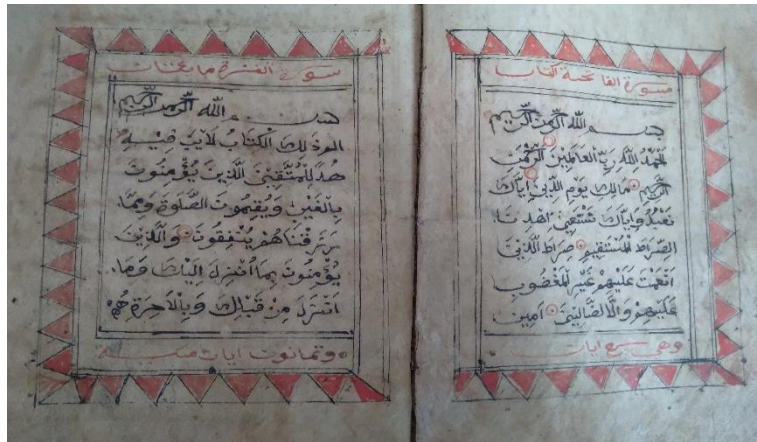 سورة الفاتحة كتاب
بسم الله الرحمن الرحيم
الحمد لله رب العالمين الرحمن
الرحيم مالك يوم الدين اياك
نعبد واياك نستعين اهدنا
الصراط المستقيم صراط الذين
انعمت عليهم غير المغضوب
عليهم والا الضالين امين
وهي سبع ايات
سورة البقرة مايتان
بسم الله الرحمن الرحيم
الم ذلك الكتاب لا ريب فيه
هدى للمتقين الذين يؤمنون
بالغيب ويقيمون الصلوة ومما
رزقناهم ينفقون والذين
يؤمنون بما انزل اليك وما
انزل من قبلك وبالاخرة هم
وثمانون ايات